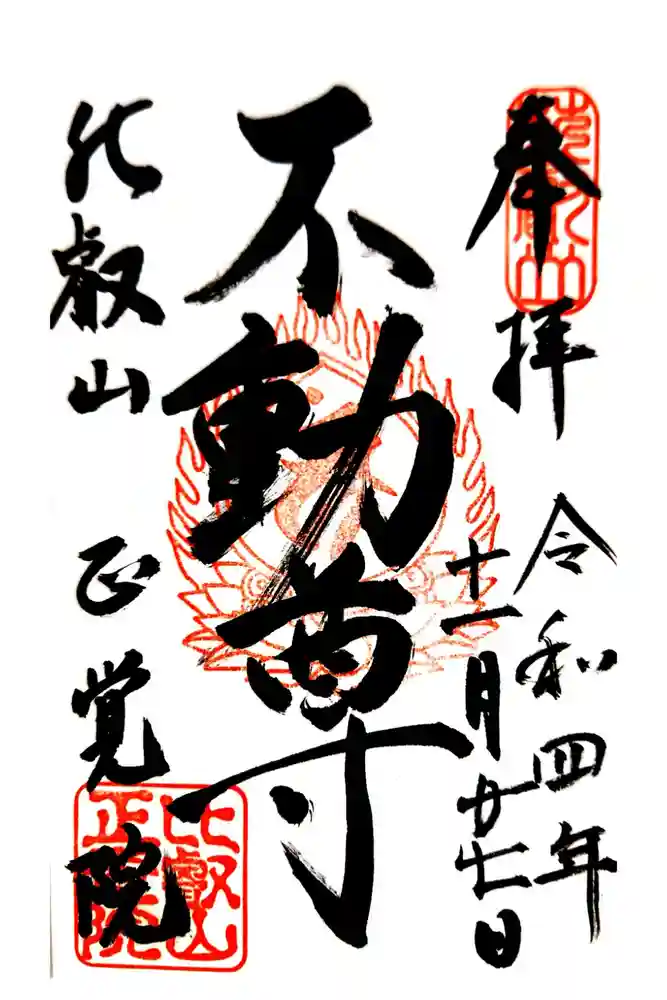 奉拝
令和四年
十一月廿七日
不動尊
比叡山 正覚院
比叡山
正覚院